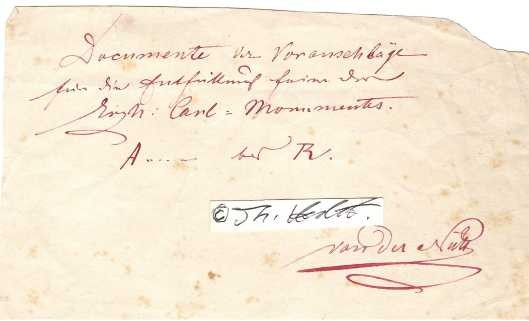 Documente der Voranschläge
für die Enthüllungs feier des
Erzh: Carl = Monumentes.
A.... bis R.
van der Nüll